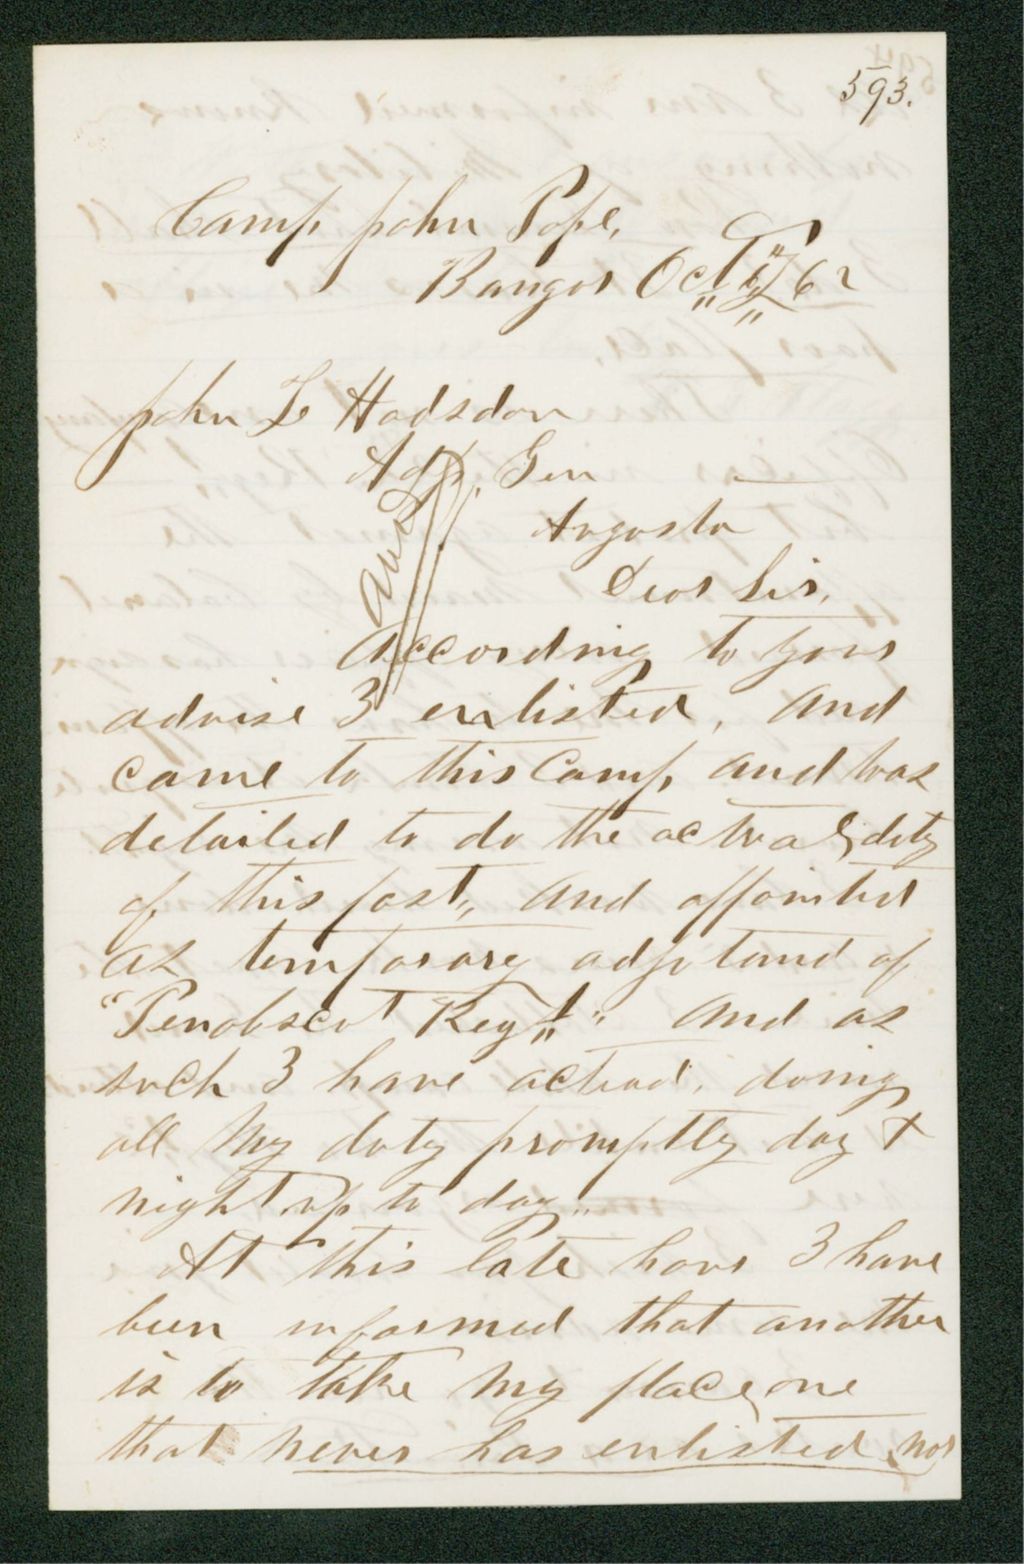 593.
Camp John Pope,
Bangor Oct 62
John L Hodsdon
Adjt. Gen
Augusta
Dear Sir,
Ansd
According to your
advise I enlisted, and
came to this Camp, and was
detailed to do the actual duty
of this post, and appointed
as temporary adjutand of
"Penobscot Regt" and as
such I have actead, doing
all my duty promptly day &
night up to day.
At this late hour I have
been informed that another
is to take my place, one
that never has enlisted, nor